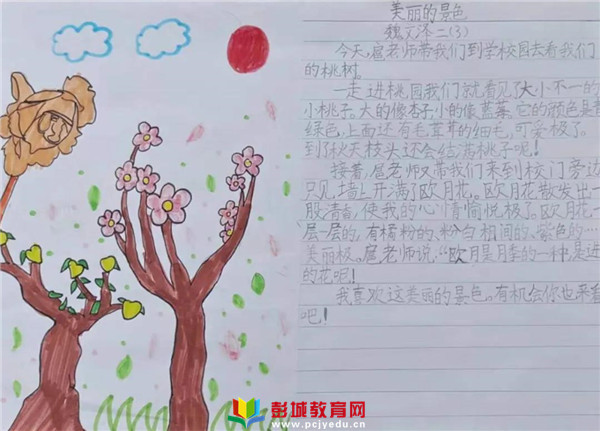 美丽的景色
二(3)
今天,扈老师带我们到学校园去看我们
的桃树。
一走进桃园我们就看见了大小不一的
小桃子。大的像杏子,小的像蓝莓。它的颜色是
绿色,上面还有毛茸茸的细毛,可爱极了。
到了秋天枝头还会结满桃子呢!
接着,扈老师又带我们来到校门旁边
只见,墙上开满了欧月花。欧月花散发出一
股清香,使我的心情愉悦极了。欧月花一
层一层的,有橘粉的,粉白相间的,紫色的…
美丽极。扈老师说,“欧月是月季的一种,是进
的花呢!
我喜欢这美丽的景色。有机会你也来看
吧!
彭城教育网
www.pcjyedu.cn